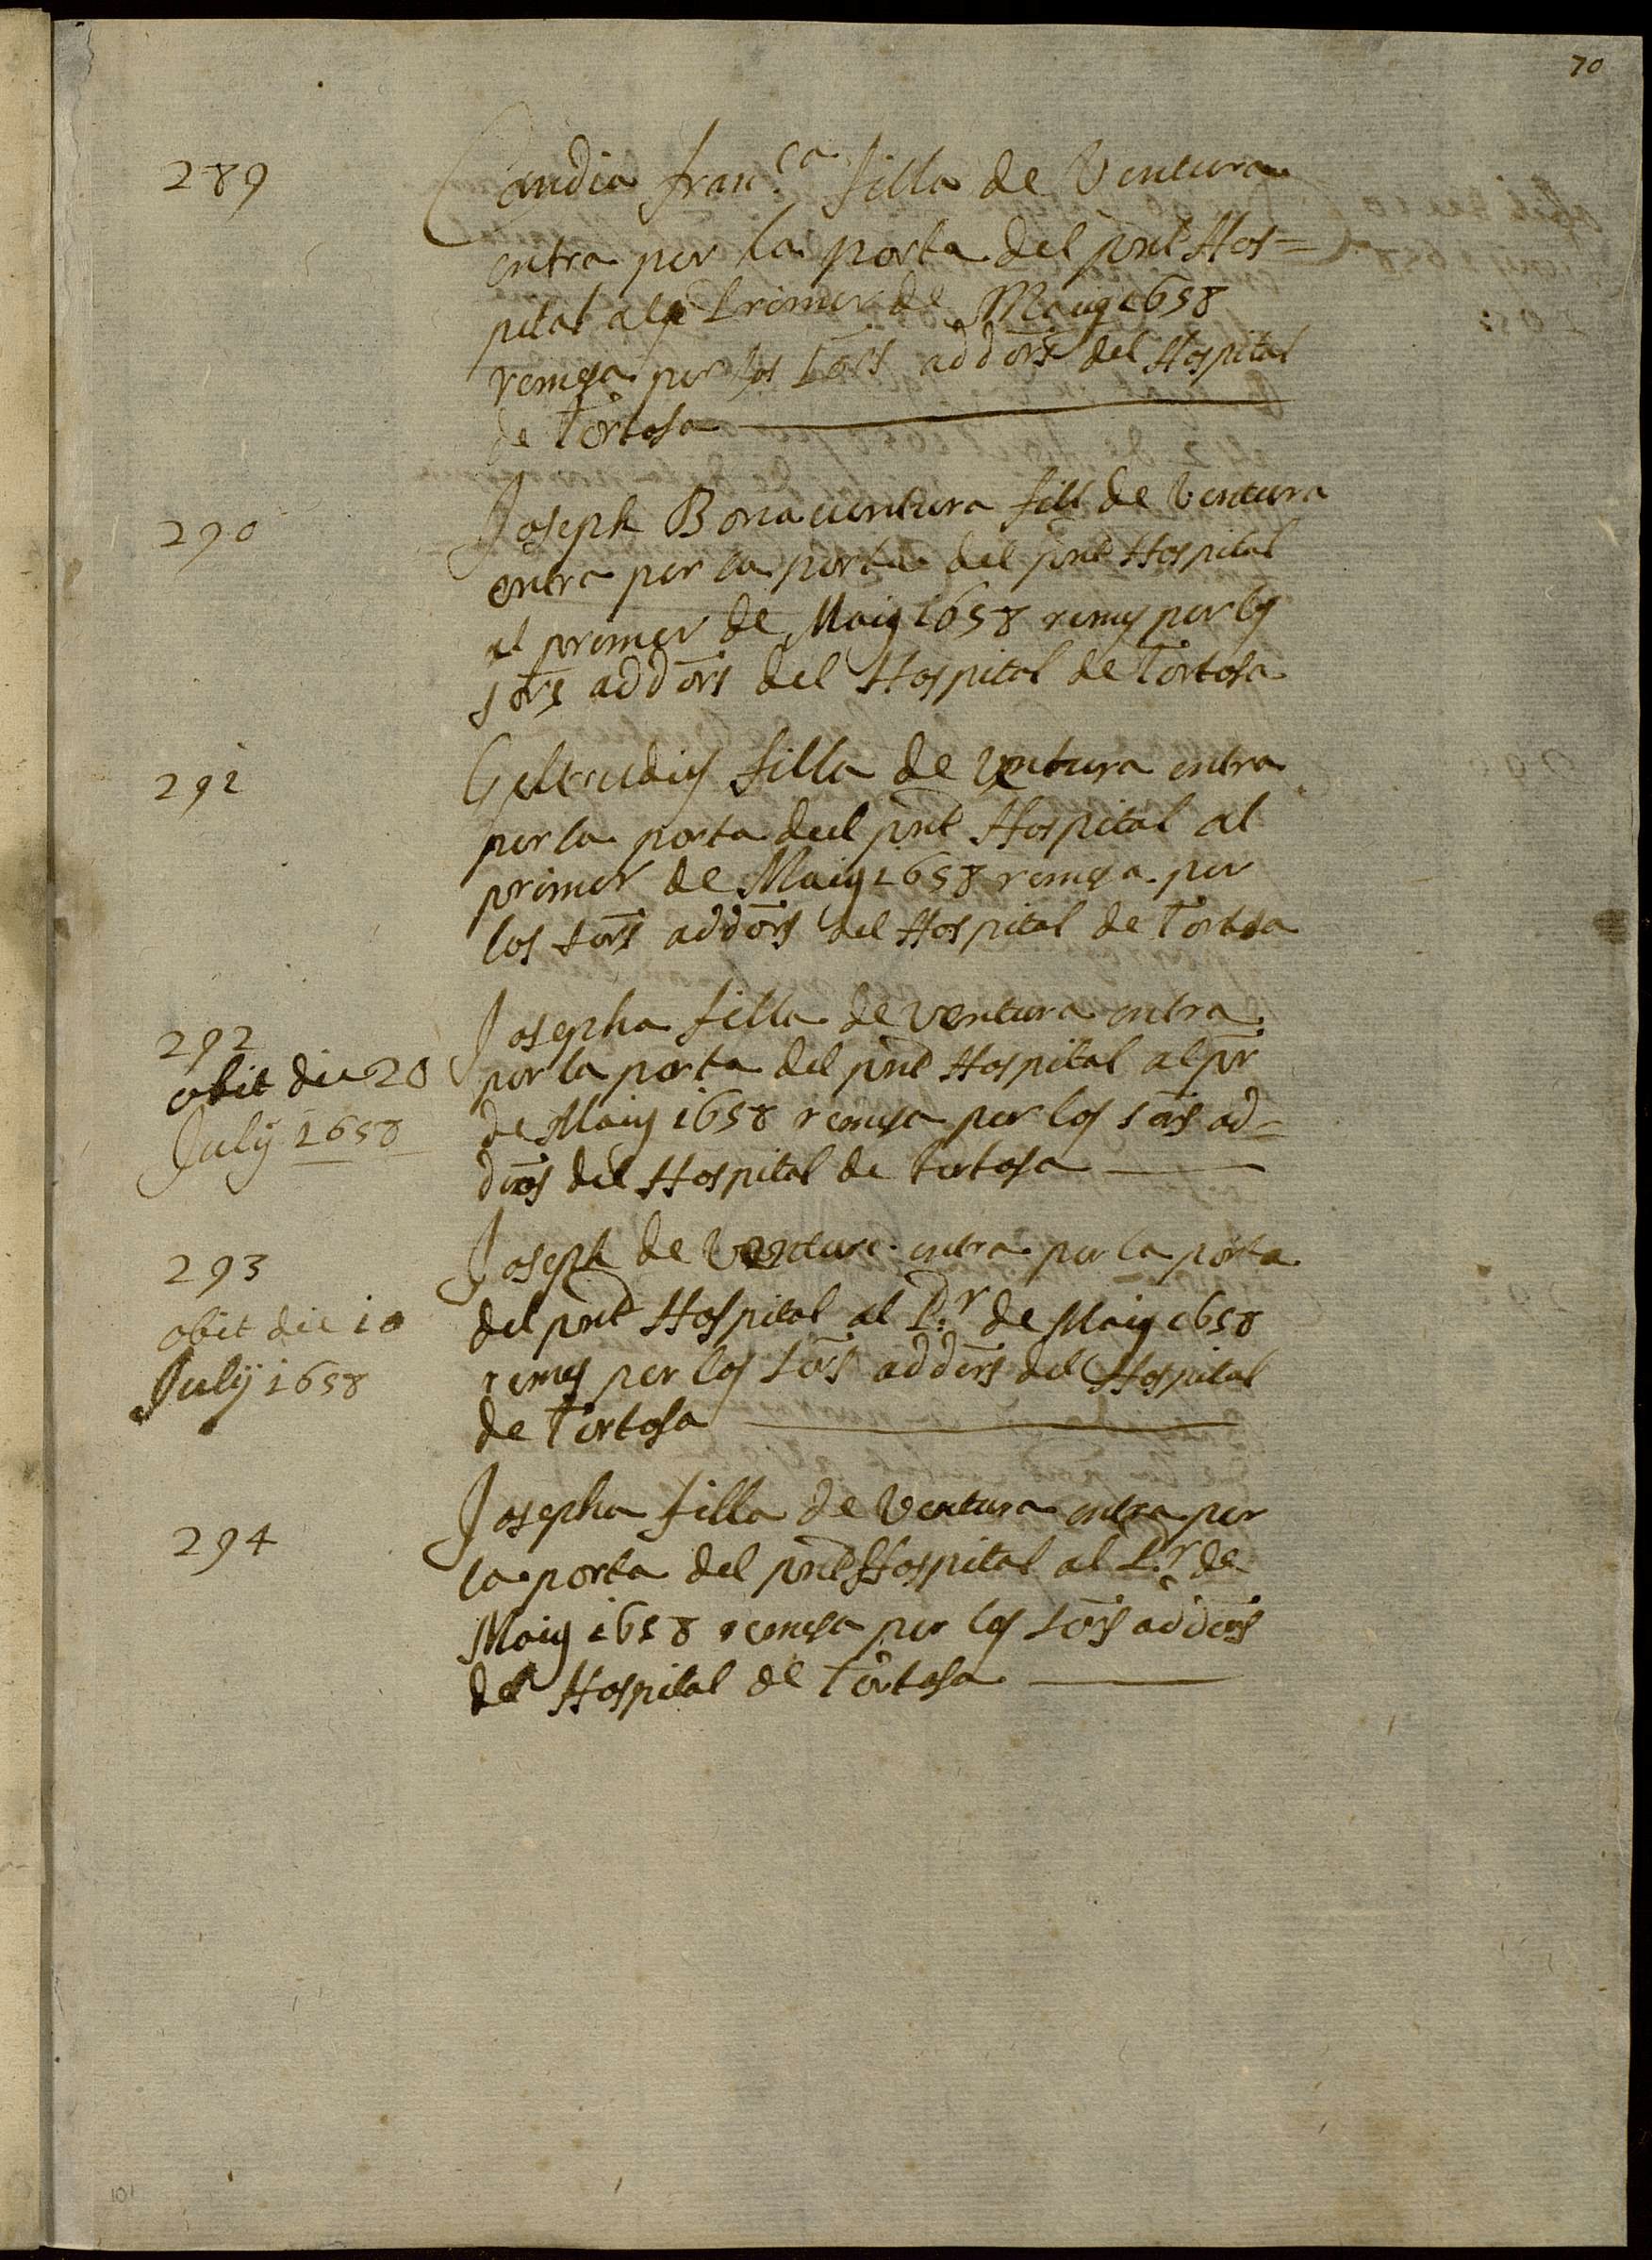 70
289
Candia fran.ca filla de Ventura
entra per la porta del pnt Hos=
pital al Primer de Maig 1658
remesa per los Sors addors del Hospital
de Tortosa
290
Joseph Bonaventura fill de Ventura
entra per la porta del pnt Hospital
al primer de Maig 1658 remes per los
sors addors del Hospital de Tortosa
291
Geltrudis filla de Ventura entra
per la porta del pnt Hospital al
primer de Maig 1658 remesa per
los sors addors del Hospital de Tortosa
292
obit die 20
July 1658
Josepha filla de Ventura entra
per la porta del pnt Hospital al pr
de Maig 1658 remesa per los sors ad=
dors del Hospital de Tortosa
293
obit die 10
July 1658
Joseph de Ventura entra per la porta
del pnt Hospital al P.r de Maig 1658
remes per los Sors addors del Hospital
de Tortosa
294
Josepha filla de Ventura entra per
la porta del pnt Hospital al P.r de
Maig 1658 remesa per los Sors addors
del Hospital de Tortosa
101